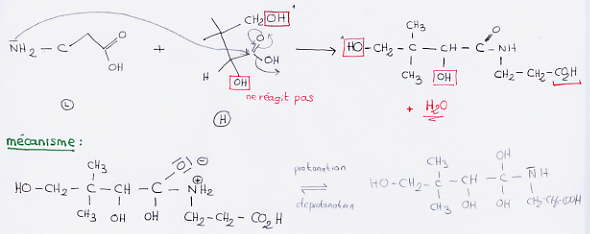 N̅H₂ – C – C – O – OH + CH₂ OH O OH H OH → HO – CH₂ – C – CH – C – NH
CH₃ O
CH₃ OH CH₂ – CH₂ – CO₂H
ne réagit pas
L H + H₂O
mécanisme :
CH₃ |O| ⊖
HO – CH₂ – C – CH – C – NH₂ ⊕
CH₃ OH OH CH₂ – CH₂ – CO₂H
protonation
⇌
deprotonation
CH₃ OH
HO – CH₂ – C – CH – C – N̅H
CH₃ OH OH CH₂-CH₂-COOH